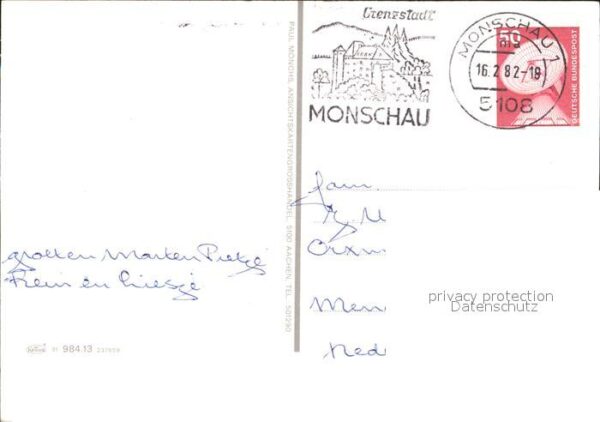 Grenzstadt
MONSCHAU
MONSCHAU 1
mg
16.2.82-18
5108
50
DEUTSCHE BUNDESPOST
PAUL MONCHS, ANSICHTSKARTENGROSSHANDEL, 5100 AACHEN, TEL. 501290
groeten Marken Pietje
Rein en Liesje
Fam.
Ned
privacy protection
Datenschutz
91 984.13